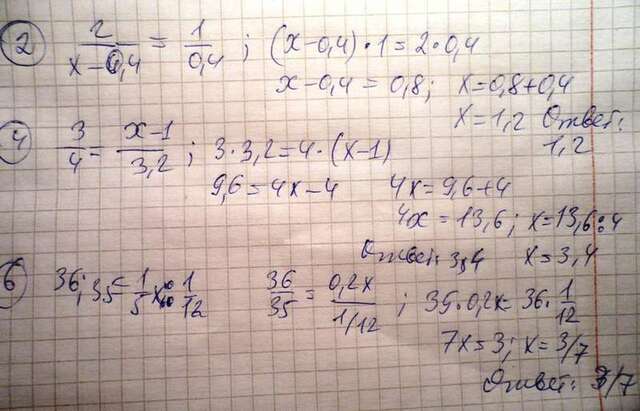 ② 2/(x-0,4) = 1/0,4 ; (x-0,4)·1=2·0,4
x-0,4=0,8; x=0,8+0,4
x=1,2 Ответ:
1,2
④ 3/4 = (x-1)/3,2 ; 3·3,2=4·(x-1)
9,6=4x-4 4x=9,6+4
4x=13,6; x=13,6:4
Ответ: 3,4 x=3,4
6 36:35=1/5x:1/12 36/35=0,2x/(1/12) ; 35·0,2x=36·1/12
7x=3; x=3/7
Ответ: 3/7